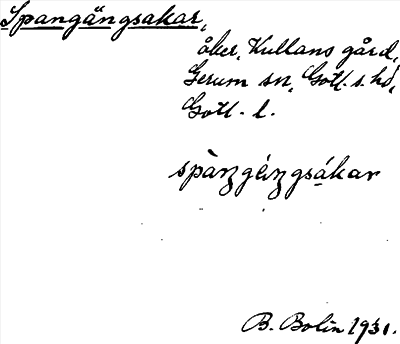 Spangängsakar,
åker, Kullans gård,
Gerum sn, Gotl. s. hd,
Gotl. l.
spàŋgáŋgsákar
B. Bolin 1931.